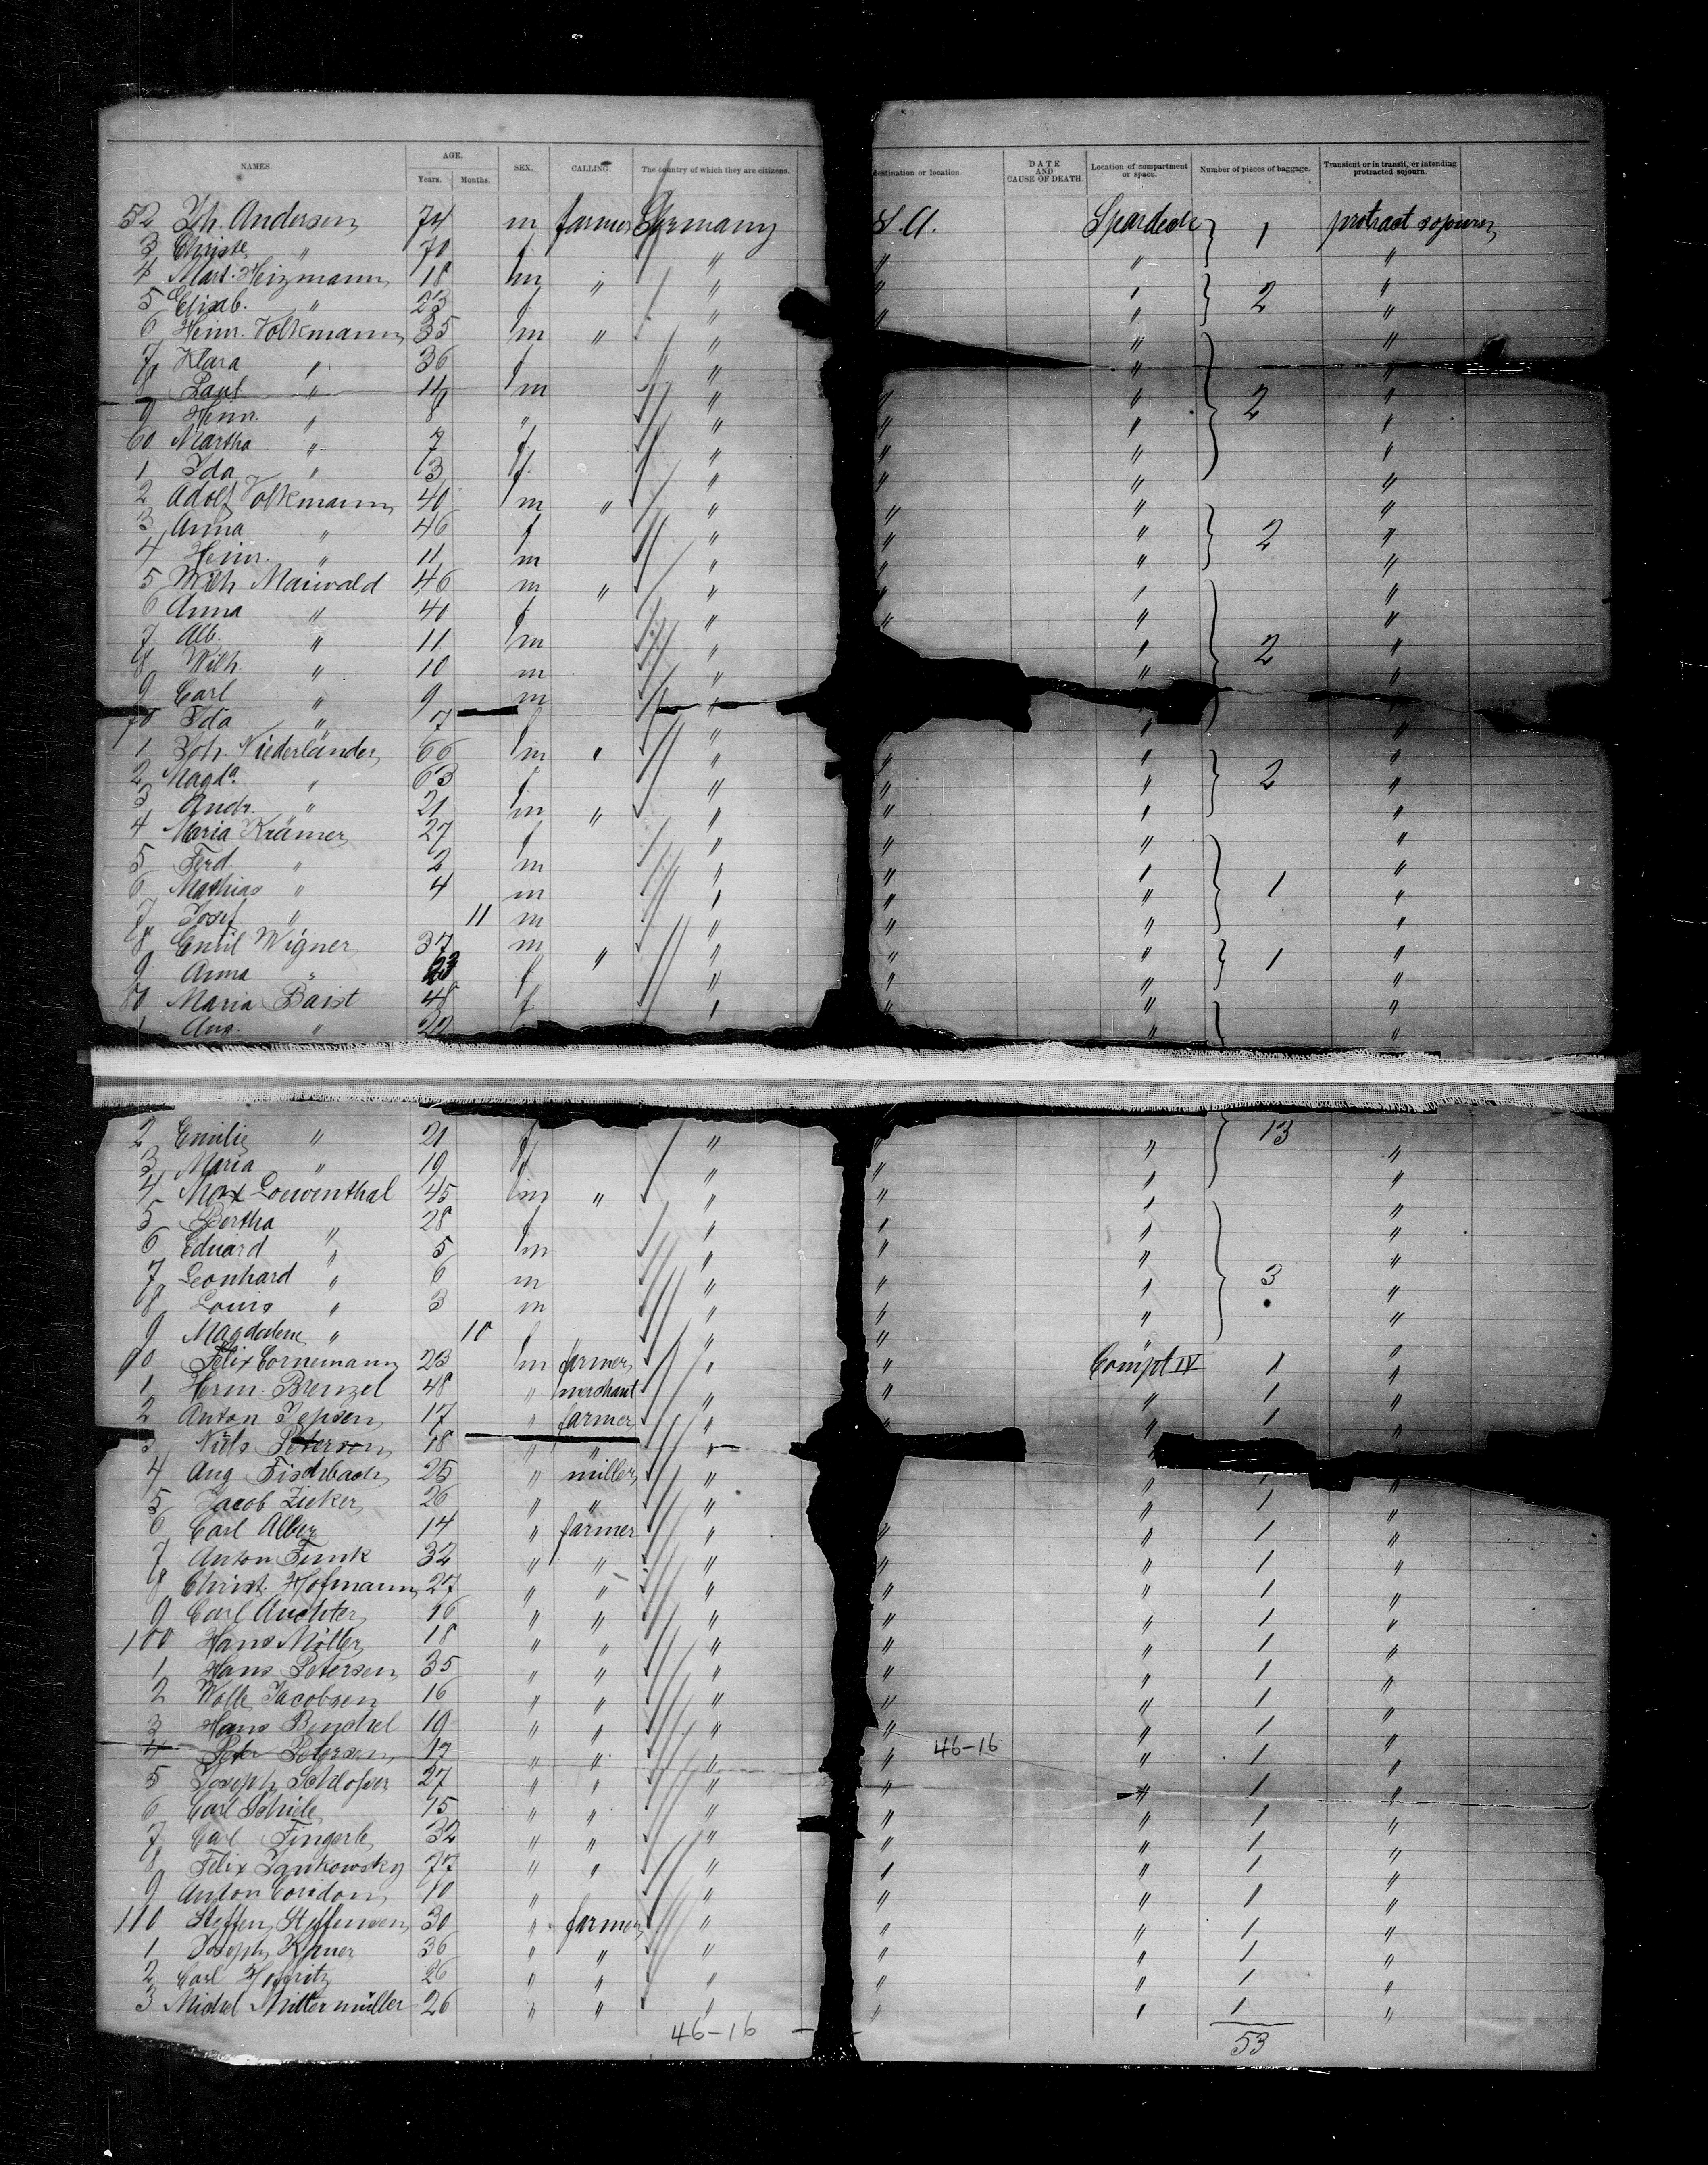 NAMES. AGE. Years. Months. SEX. CALLING. The country of which they are citizens. destination or location. DATE AND CAUSE OF DEATH. Location of compartment or space. Number of pieces of baggage. Transient or in transit, or intending protracted sojourn.
52 Joh. Andersen 74 m farmer Germany S. A. Spardeck 1 protract sojourn
3 Christe " 70 f " " " "
4 Mart. Heizmann 18 m " " " " 2 "
5 Elisab. " 23 f " " " "
6 Heinr. Volkmann 35 m " " " "
7 Klara " 36 f " " "
8 Paul " 11 m " " " " 2
9 Heinr. " 8 " " " " "
60 Martha " 7 f " " " "
1 Ida " 3 f " " " "
2 Adolf Volkmann 40 m " " " " "
3 Anna " 46 f " " " 2 "
4 Heinr. " 11 m " " " "
5 Wilh Maiwald 46 m " " " " "
6 Anna " 40 f " " " "
7 Alb. " 11 m " " 2 "
8 Wilh. " 10 m " " "
9 Carl " 9 m "
70 Ida " 7 f " " "
1 Joh. Niederländer 66 m " " " " "
2 Magda " 63 f " " " 2 "
3 Andr. " 21 m " " " " "
4 Maria Krämer 27 f " " " "
5 Ferd. " 2 m " " " "
6 Mathias " 4 m " " " 1 "
7 Josef " 11 m " " " "
8 Emil Wigner 37 m " " " " 1 "
9 Anna " 23 f " " " "
80 Maria Baist 48 f " " " "
1 Aug. " 22 " "
2 Emilie " 21 f " " " 13 "
3 Maria " 19 f " " " "
4 Max Loewenthal 45 m " " " " "
5 Bertha " 28 f " " " "
6 Eduard " 5 m " " " "
7 Leonhard " 6 m " " " 3 "
8 Louis " 3 m " " " "
9 Magdalene " 10 f " " " "
90 Felix Cornemann 23 m farmer " " Compt IV 1 "
1 Herm. Brenzel 48 " merchant " " " 1 "
2 Anton Jepsen 17 " farmer " " " 1 "
3 Niels Peterson 18 " " "
4 Aug Fischbach 25 " miller " " 1 "
5 Jacob Zieker 26 " " " " 1 "
6 Carl Alber 14 " farmer " " " 1 "
7 Anton Funk 32 " " " " " 1 "
8 Christ. Hofmann 27 " " " " " 1 "
9 Carl Auchter 16 " " " " " 1 "
100 Hans Möller 18 " " " " " 1 "
1 Hans Petersen 35 " " " " " 1 "
2 Wolle Jacobsen 16 " " " " " 1 "
3 Hans Bendel 19 " " " " " 1 "
4 Peter Petersen 17 " " " " 46-16 " 1 "
5 Joseph Schlosser 27 " " " " " 1 "
6 Carl Schiele 15 " " " " " 1 "
7 Carl Fingerle 32 " " " " " 1 "
8 Felix Jankowsky 77 " " " " " 1 "
9 Anton Coridon 10 " " " " 1 "
110 Steffen Steffensen 30 " farmer " " " 1 "
1 Joseph 36 " " " " " 1 "
2 Carl 26 " " " " " 1 "
3 Michel Mittermüller 26 " " " " " 1 "
46-16 53